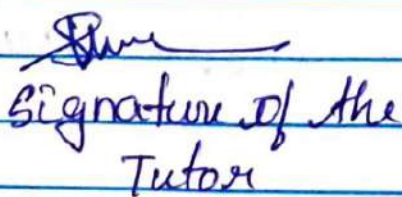 Signature of the
Tutor